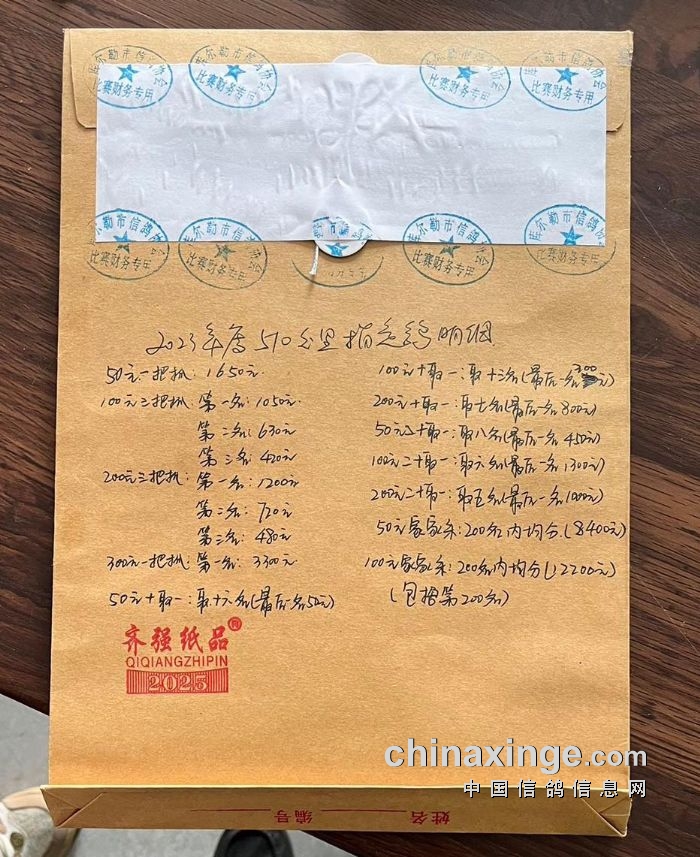 库尔勒市信鸽协会
比赛财务专用
库尔勒市信鸽协会
比赛财务专用
库尔勒市信鸽协会
比赛财务专用
库尔勒市信鸽协会
比赛财务专用
库尔勒市信鸽协会
比赛财务专用
库尔勒市信鸽协会
比赛财务专用
库尔勒市信鸽协会
比赛财务专用
库尔勒市信鸽协会
比赛财务专用
2023年度510公里指定鸽明细
50元一把抓:1650元
100元三把抓:第一名:1050元
第二名:630元
第三名:420元
200元三把抓:第一名:1200元
第二名:720元
第三名:480元
300元一把抓:第一名:3300元
50元十取一:取十六名(最后一名50元)
100元十取一:取十三名(最后一名300元)
200元十取一:取七名(最后一名800元)
50元二十取一:取八名(最后一名450元)
100元二十取一:取六名(最后一名1300元)
200元二十取一:取五名(最后一名1000元)
50元家家乐:200名内均分(8400元)
100元家家乐:200名内均分(12200元)
(包括第200名)
齐强纸品®
QIQIANGZHIPIN
2025
chinaxinge.com
中国信鸽信息网
姓名
编号